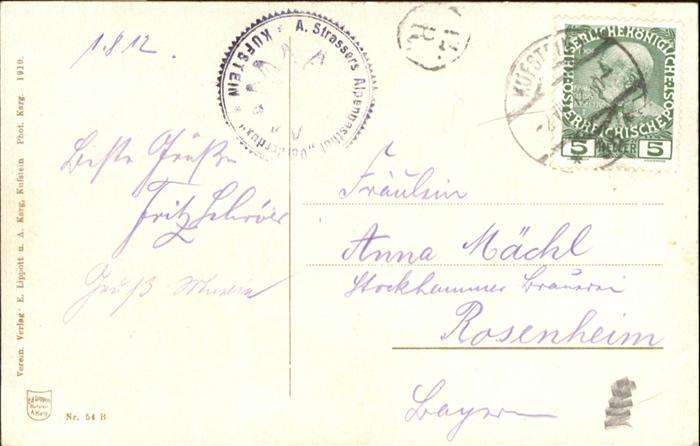 1.8.12.
Beste Grüße
Fritz
Gruß
A. Strassers Alpengasthof
KUFSTEIN
K.
B.
KUFSTEIN
KAISERLICHE KÖNIGLICHE
ÖSTERREICHISCHE POST
5 HELLER 5
Fräulein
Anna Mächl
Stockhammer Bräuerei
Rosenheim
Bayern
Verein. Verlag: E. Lippott u. A. Karg, Kufstein Phot. Karg. 1910.
Nr. 54 B